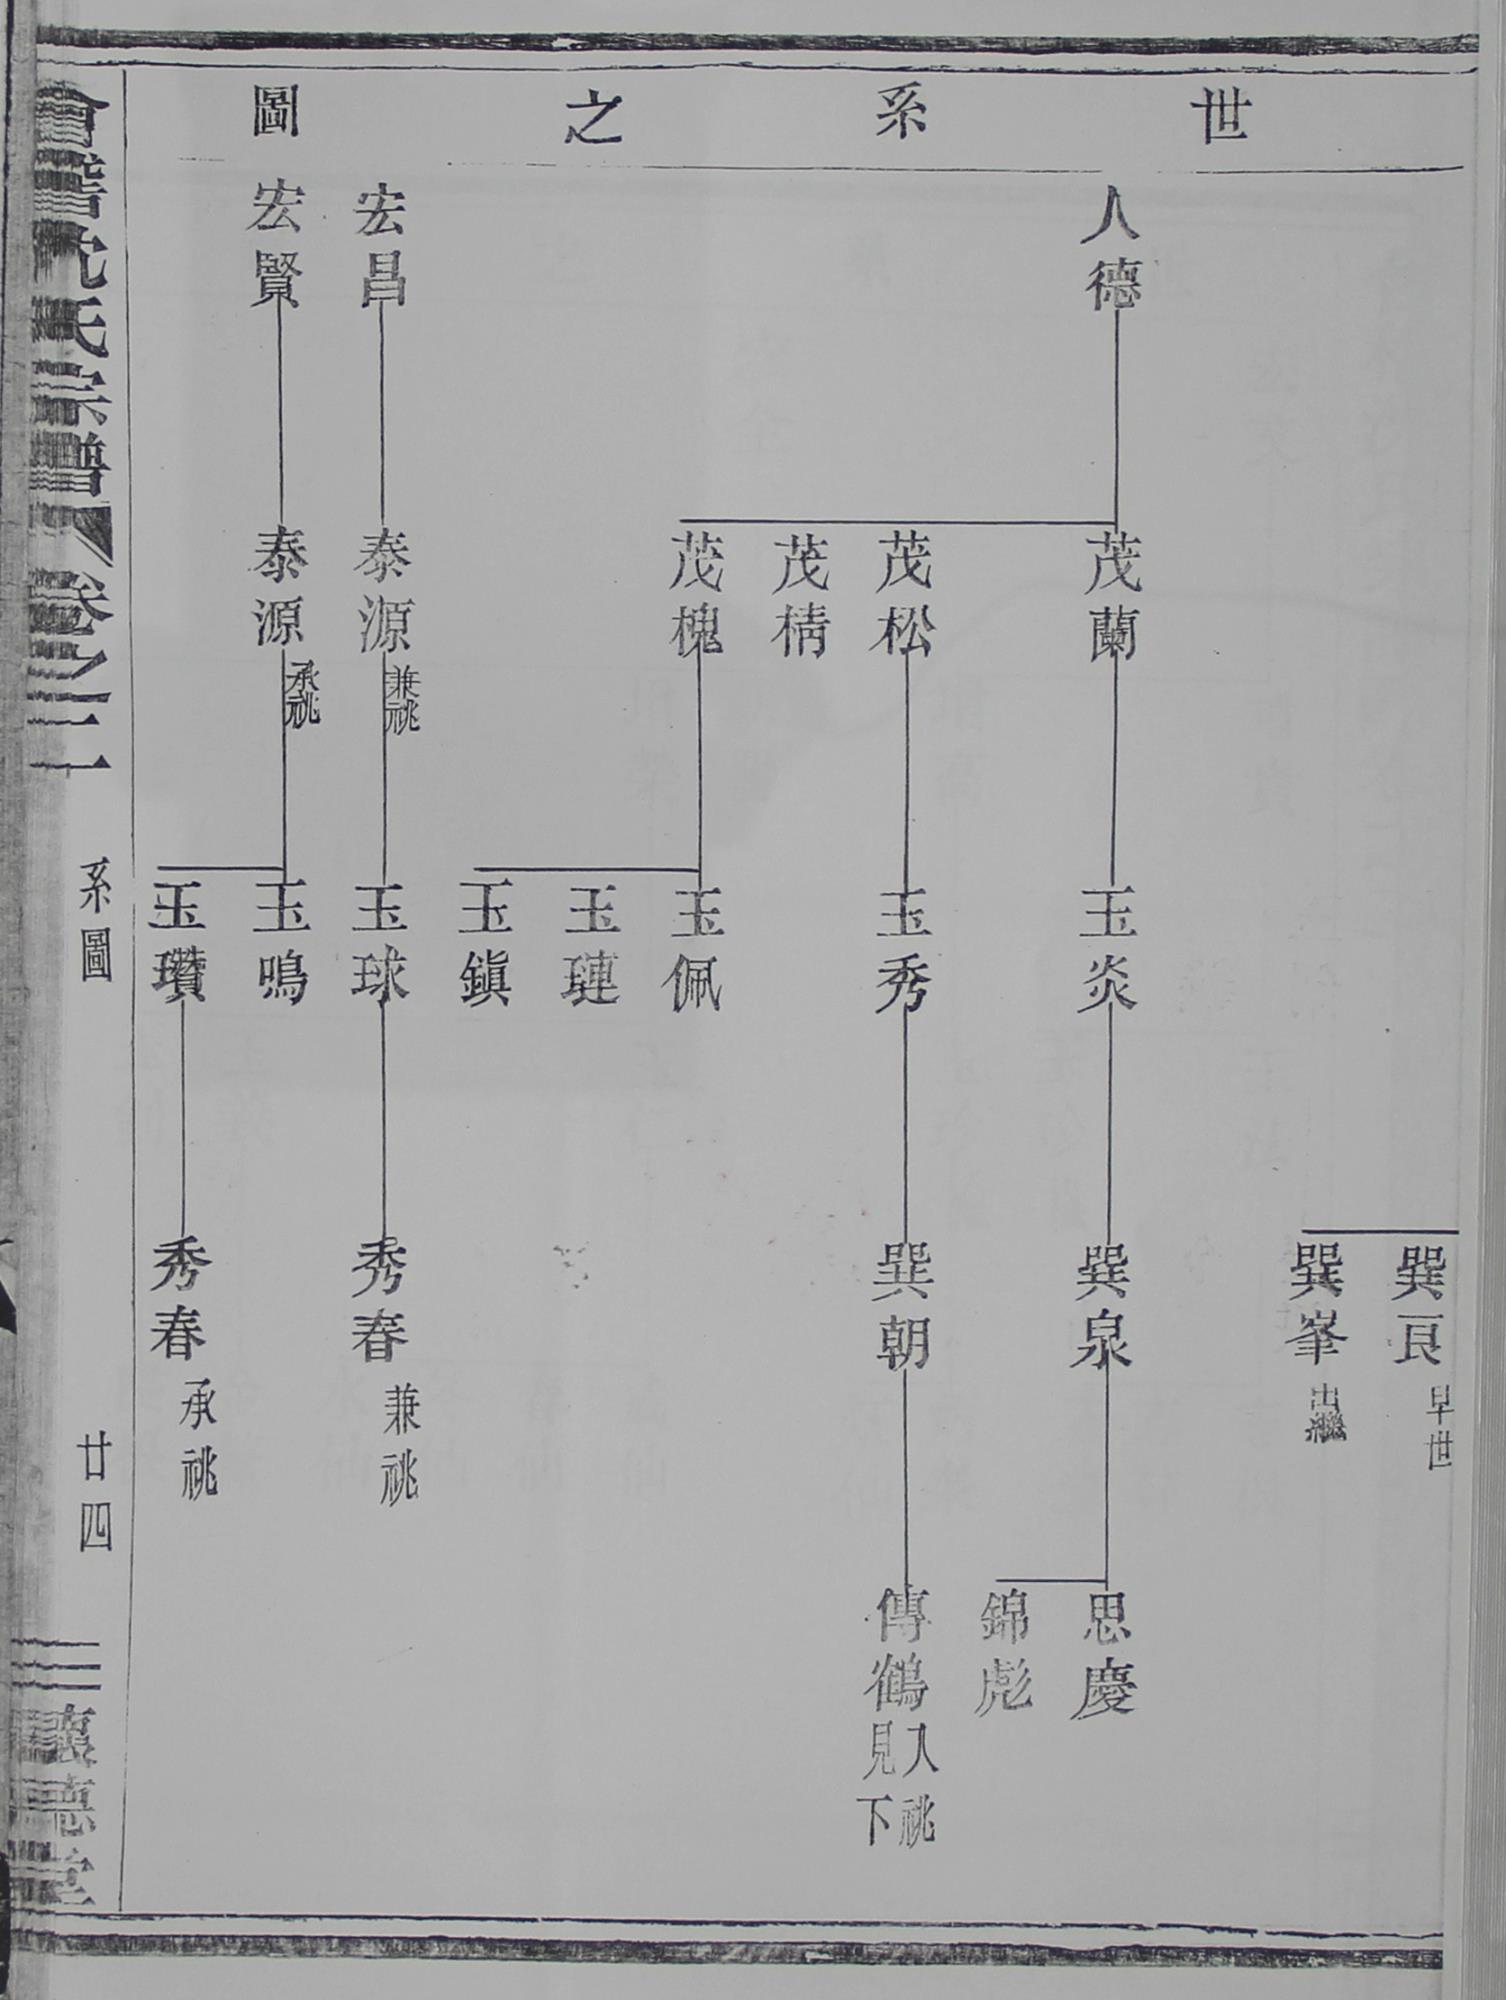 世系之圖
巽艮 早世
巽峯 出繼
人德
茂蘭
玉炎
巽泉
思慶
錦彪
茂松
玉秀
巽朝
傳鶴 入祧 見下
茂椅
茂槐
玉佩
玉璉
玉鎮
宏昌
泰源 兼祧
玉球
秀春 兼祧
宏賢
泰源 承祧
玉鳴
玉瓚
秀春 承祧
會稽沈氏宗譜 卷之二 系圖 廿四 懷德堂